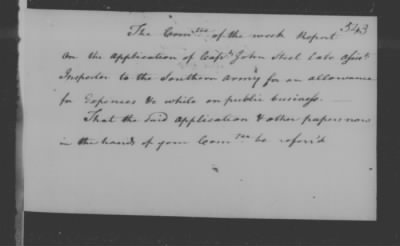 543
The Com.tee of the week Report
On the Application of Capt. John Steel late Assist.
Inspector to the Southern Army for an allowance
for Expences &c while on public business. —
That the said Application & other papers now
in the hands of your Com.tee be refer'd